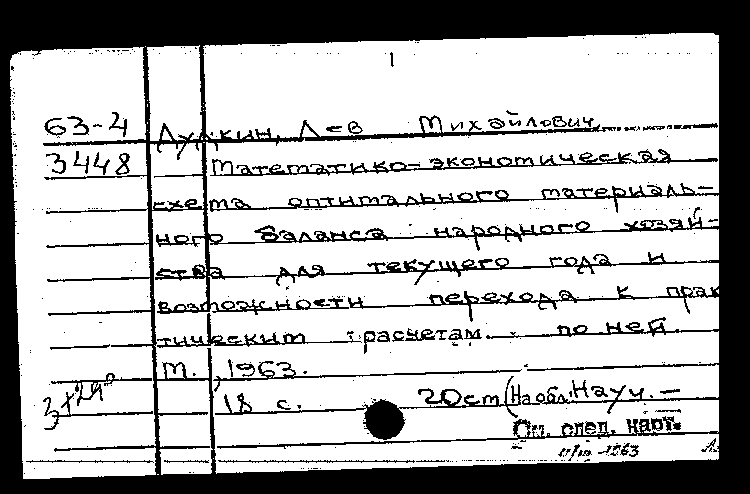 1
63-4 Дудкин, Лев Михайлович.
3448 Математико-экономическая
схема оптимального материаль-
ного баланса народного хозяй-
ства для текущего года и
возможности перехода к прак
тическим расчетам по ней.
М., 1963.
18 с. 20см (На обл.: Науч. —
См. след. карт.
1963